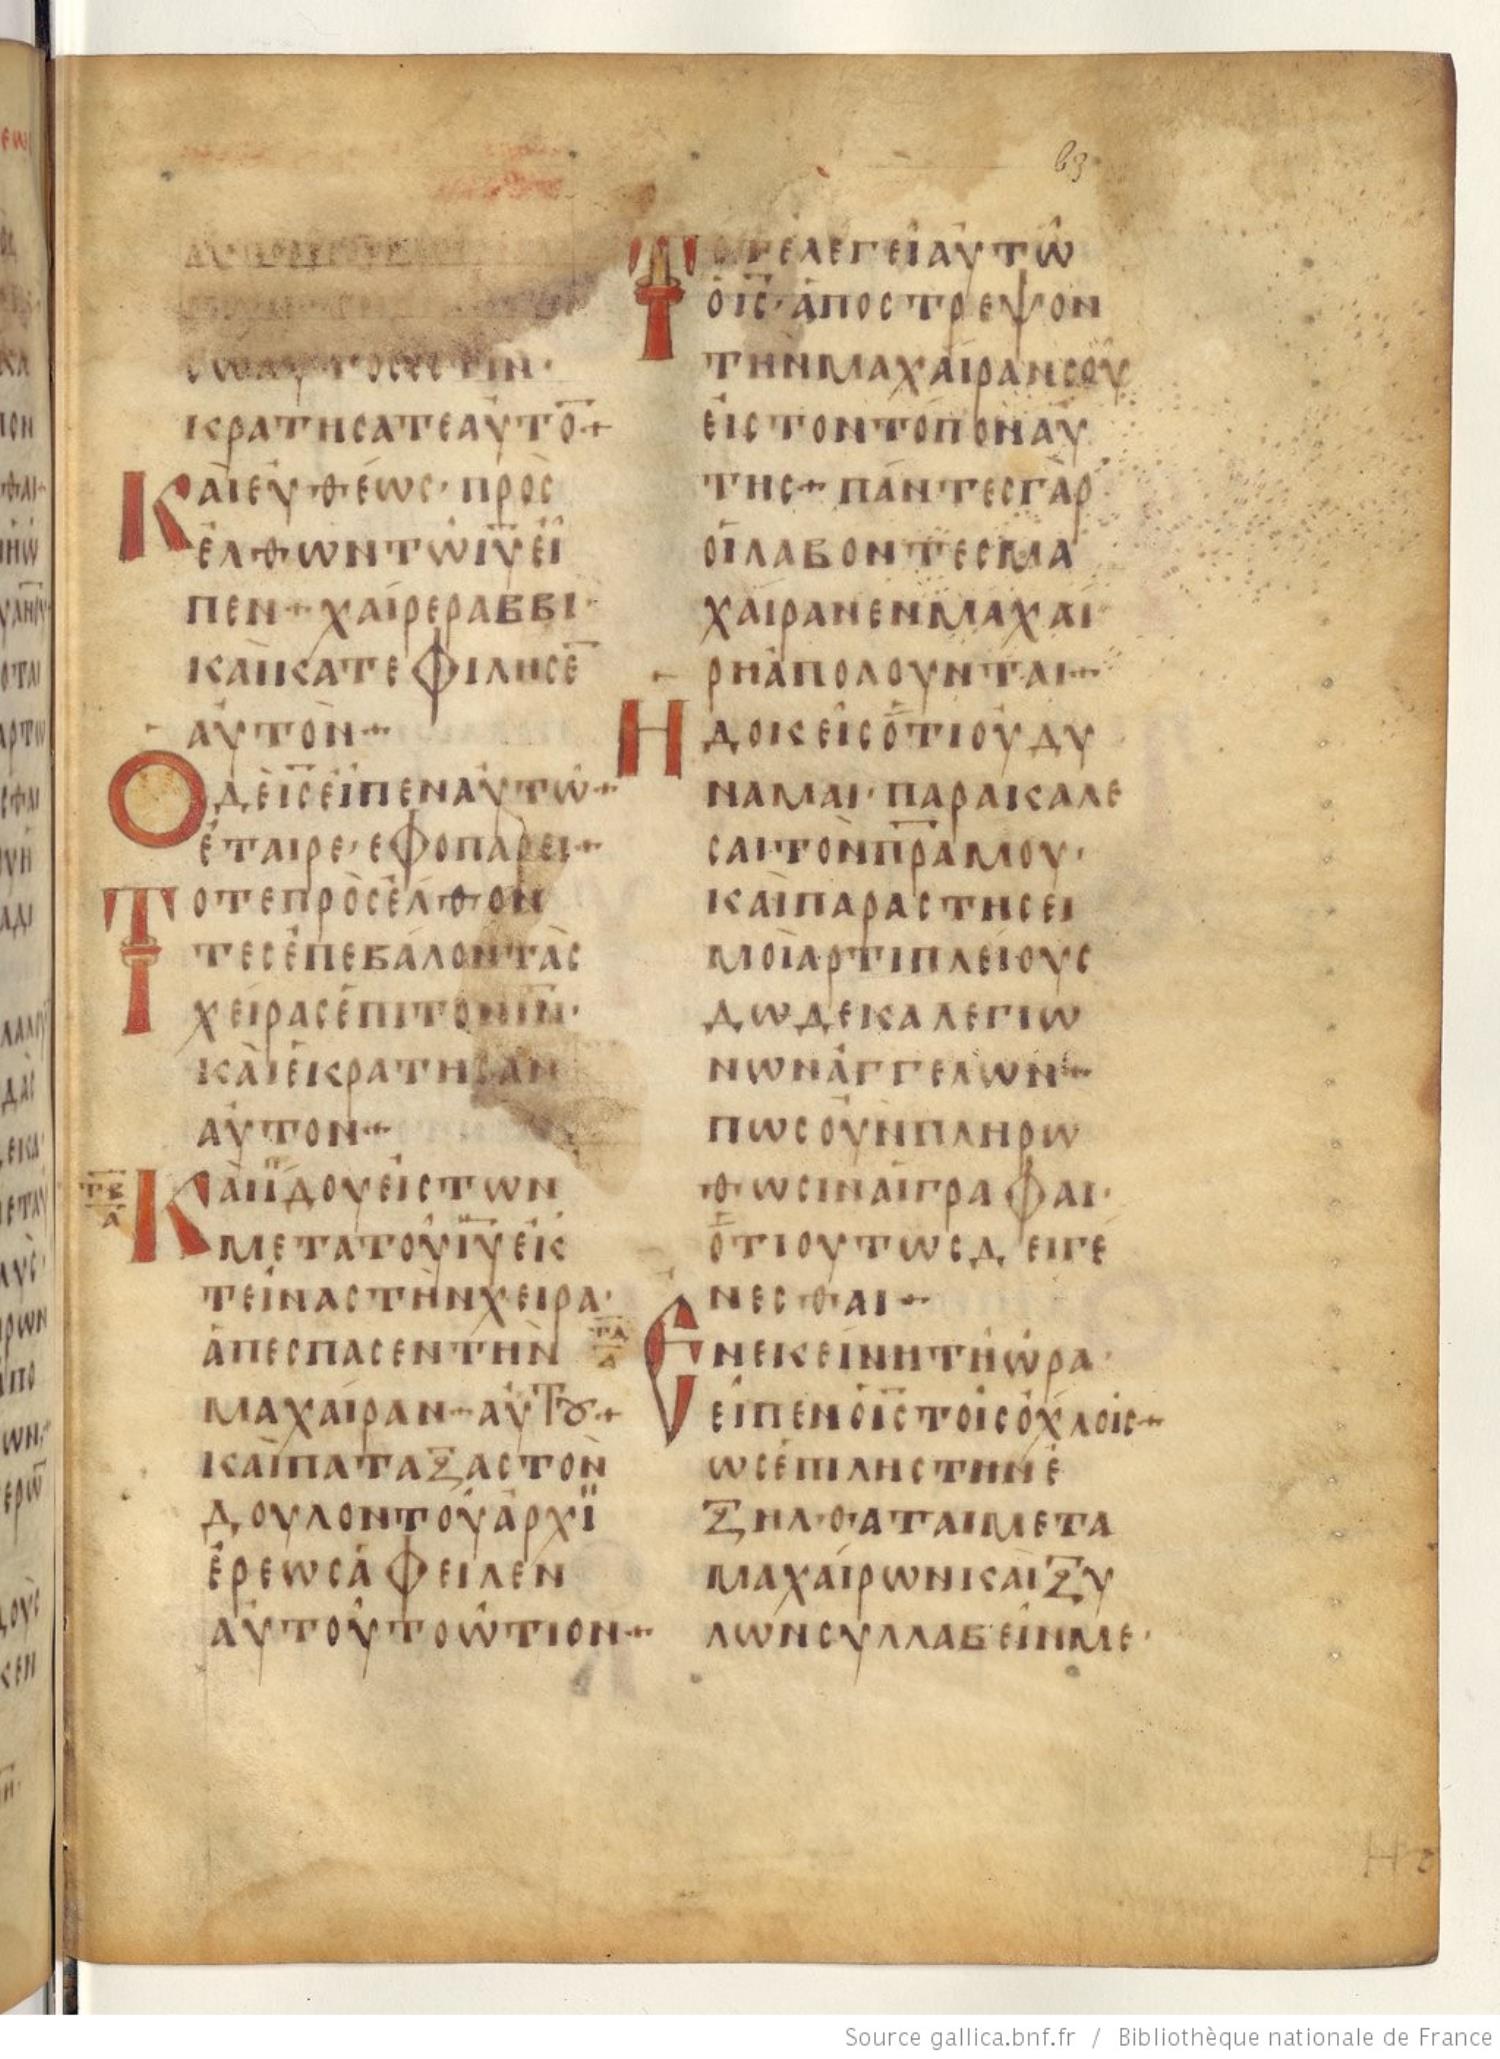 63
ΚΡΑΤΗСΑΤΕΑΥΤΟ̅+
ΚΑΙΕΥΘΕΩС·ΠΡΟС
ΕΛΘΩΝΤΩΙ̅Υ̅ΕΙ
ΠΕΝ+ΧΑΙΡΕΡΑΒΒΙ·
ΚΑΙΚΑΤΕΦΙΛΗСΕ̅
ΑΥΤΟΝ+
ΟΔΕΙ̅С̅ΕΙΠΕΝΑΥΤΩ+
ΕΤΑΙΡΕ·ΕΦΟΠΑΡΕΙ+
ΤΟΤΕΠΡΟСΕΛΘΟΝ
ΤΕСΕΠΕΒΑΛΟΝΤΑС
ΧΕΙΡΑСΕΠΙΤΟΝΙ̅Ν̅·
ΚΑΙΕΚΡΑΤΗСΑΝ
ΑΥΤΟΝ+
ΚΑΙΪΔΟΥΕΙСΤΩΝ
ΜΕΤΑΤΟΥΙ̅Υ̅ΕΚ
ΤΕΙΝΑСΤΗΝΧΕΙΡΑ·
ΑΠΕСΠΑСΕΝΤΗΝ
ΜΑΧΑΙΡΑΝ+ΑΥΤȢ+
ΚΑΙΠΑΤΑΞΑСΤΟΝ
ΔΟΥΛΟΝΤΟΥΑΡΧΪ
ΕΡΕΩСΑΦΕΙΛΕΝ
ΑΥΤΟΥΤΟΩΤΙΟΝ+
ΤΟΤΕΛΕΓΕΙΑΥΤΩ
ΟΙ̅С̅·ΑΠΟСΤΡΕΨΟΝ
ΤΗΝΜΑΧΑΙΡΑΝСΟΥ
ΕΙСΤΟΝΤΟΠΟΝΑΥ
ΤΗС+ΠΑΝΤΕСΓΑΡ
ΟΙΛΑΒΟΝΤΕСΜΑ
ΧΑΙΡΑΝΕΝΜΑΧΑΙ
ΡΗΑΠΟΛΟΥΝΤΑΙ+
ΗΔΟΚΕΙСΟΤΙΟΥΔΥ
ΝΑΜΑΙ·ΠΑΡΑΚΑΛΕ
СΑΙΤΟΝΠ̅Ρ̅ΑΜΟΥ·
ΚΑΙΠΑΡΑСΤΗСΕΙ
ΜΟΙΑΡΤΙΠΛΕΙΟΥС
ΔΩΔΕΚΑΛΕΓΙΩ
ΝΩΝΑΓΓΕΛΩΝ+
ΠΩСΟΥΝΠΛΗΡΩ
ΘΩСΙΝΑΙΓΡΑΦΑΙ·
ΟΤΙΟΥΤΩСΔΕΙΓΕ
ΝΕСΘΑΙ+
ΕΝΕΚΕΙΝΗΤΗΩΡΑ·
ΕΙΠΕΝΟΙ̅С̅ΤΟΙСΟΧΛΟΙС+
ΩСΕΠΙΛΗСΤΗΝΕ
ΞΗΛΘΑΤΑΙΜΕΤΑ
ΜΑΧΑΙΡΩΝΚΑΙΞΥ
ΛΩΝСΥΛΛΑΒΕΙΝΜΕ·
Source gallica.bnf.fr / Bibliothèque nationale de France